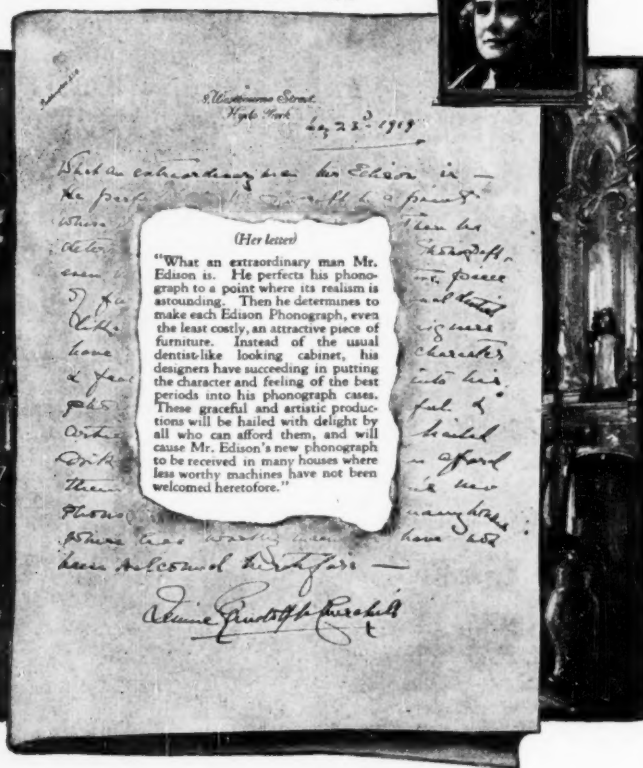 8, Westbourne Street.
Hyde Park
23rd - 1919
What an extraordinary man Mr Edison is —
He perfe
point
Then he
deter
Phonograph,
even
piece
of fu
usual dentist
like
signers
have
character
& fee
into his
pho
ful &
artis
hailed
afford
them
new
Phono
many houses
where less worthy
have not
been welcomed heretofore —
Jennie Randolph Churchill
(Her letter)
"What an extraordinary man Mr.
Edison is. He perfects his phono-
graph to a point where its realism is
astounding. Then he determines to
make each Edison Phonograph, even
the least costly, an attractive piece of
furniture. Instead of the usual
dentist-like looking cabinet, his
designers have succeeding in putting
the character and feeling of the best
periods into his phonograph cases.
These graceful and artistic produc-
tions will be hailed with delight by
all who can afford them, and will
cause Mr. Edison's new phonograph
to be received in many houses where
less worthy machines have not been
welcomed heretofore."